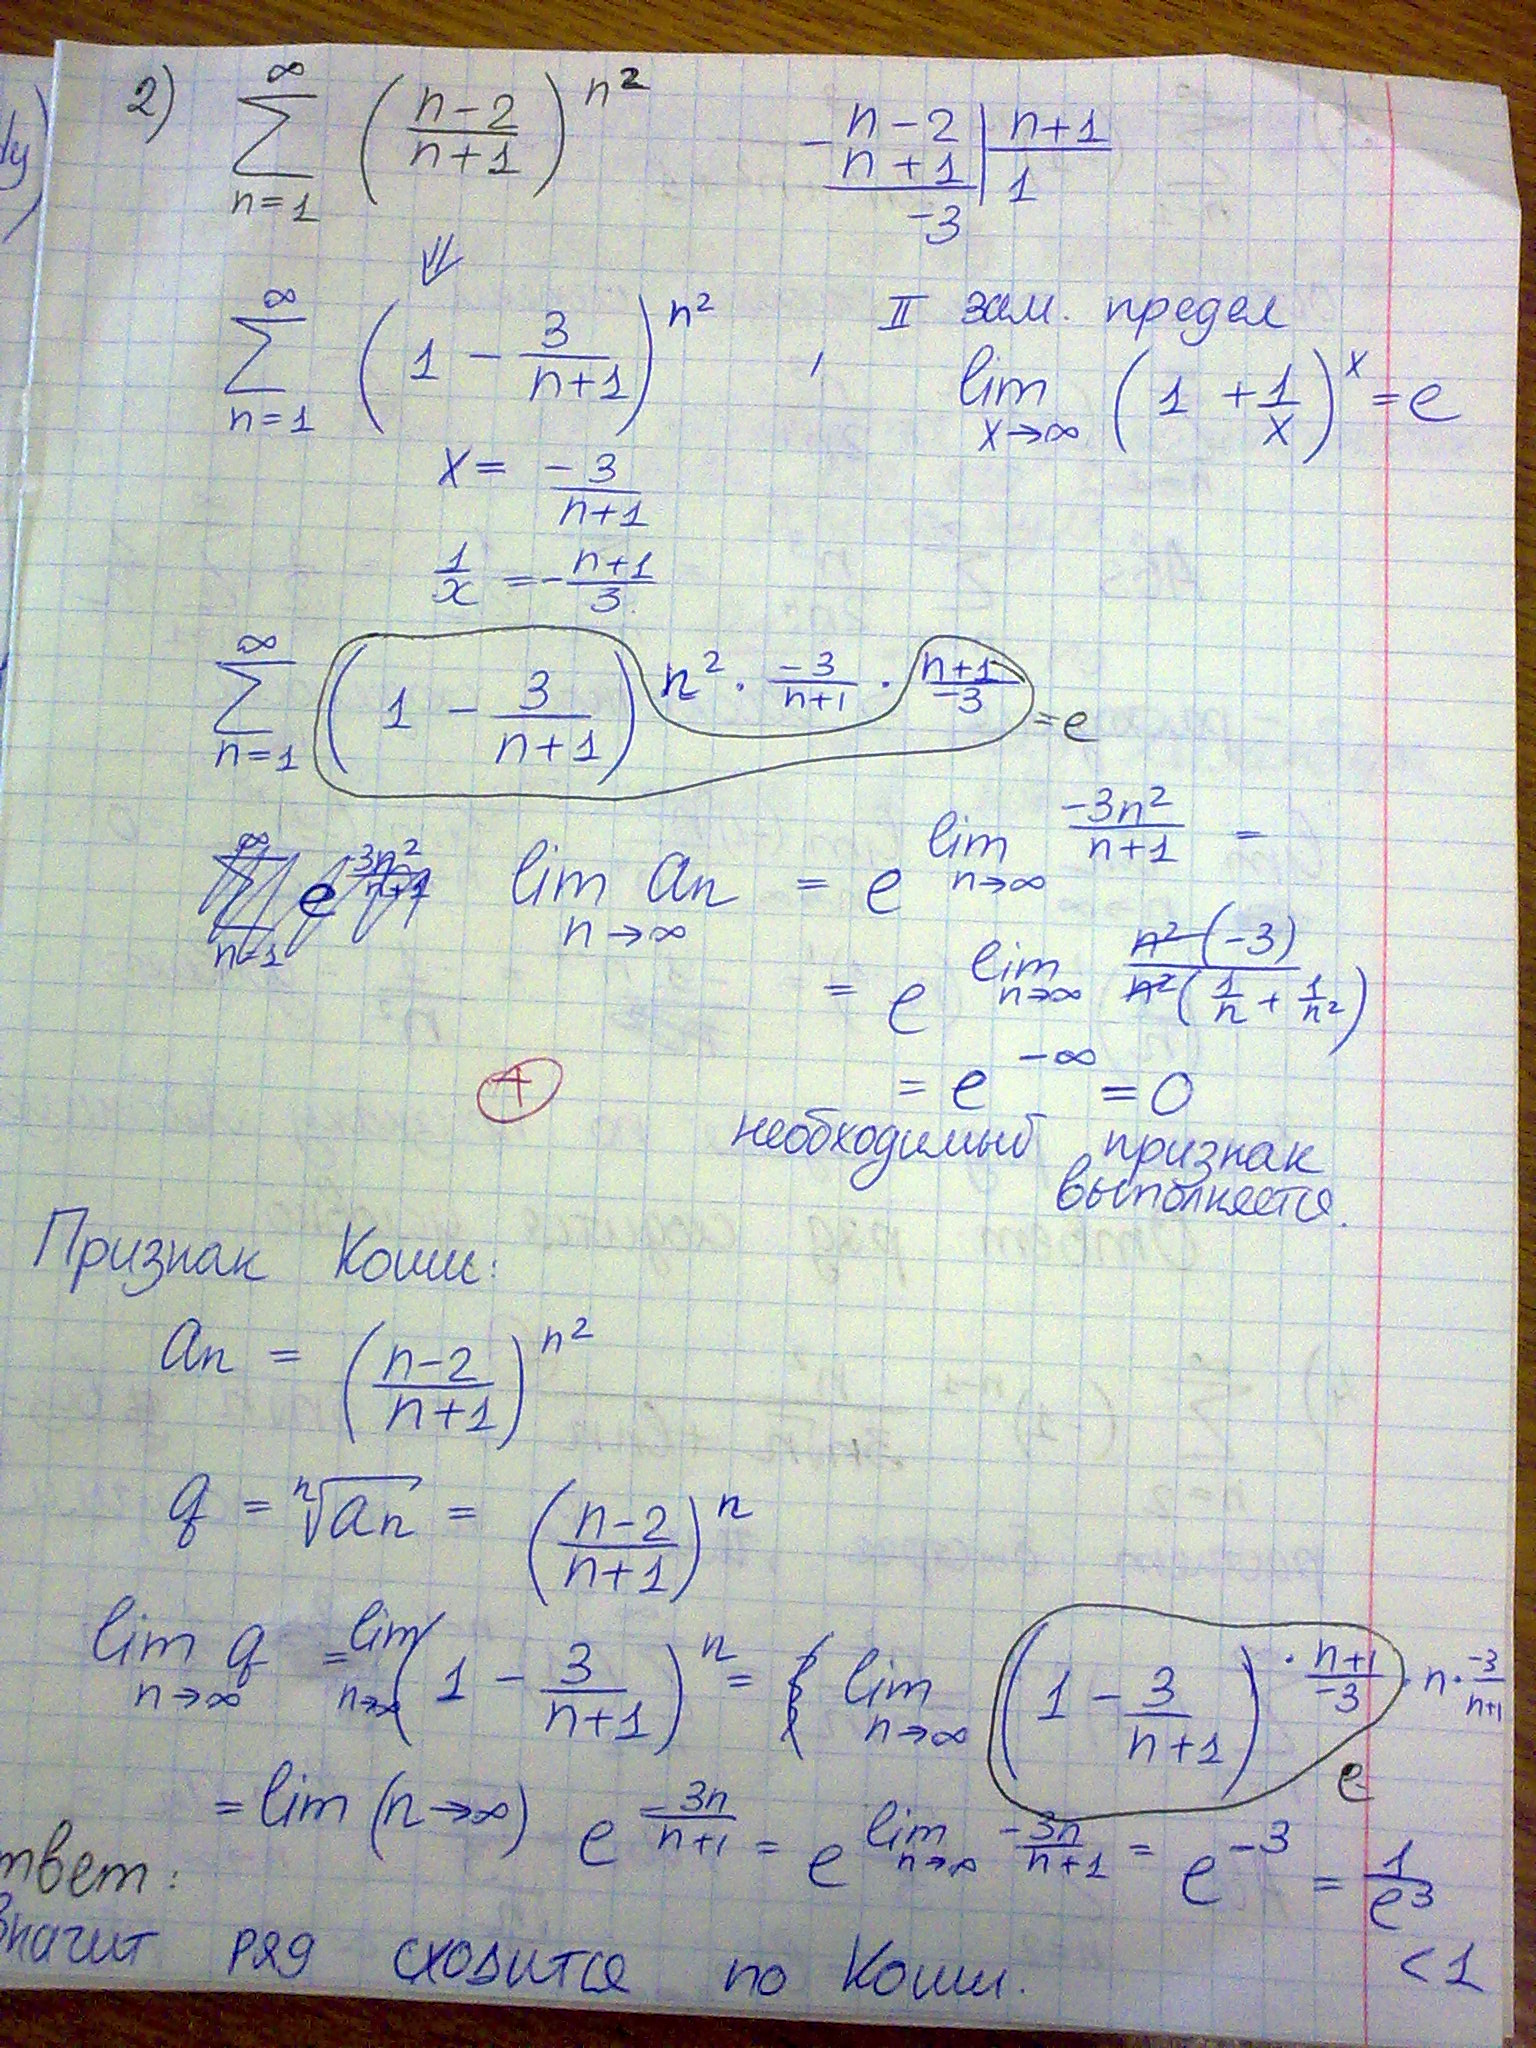 2) ∞ ∑ n=1 ( (n-2)/(n+1) )^n²
- n-2 | n+1
n+1 | 1
-3
⇓
∞ ∑ n=1 ( 1 - 3/(n+1) )^n² ,
II зам. предел
lim x→∞ ( 1 + 1/x )^x = e
x = -3/(n+1)
1/x = - (n+1)/3
∞ ∑ n=1 ( 1 - 3/(n+1) )^(n² · -3/(n+1) · (n+1)/-3) = e
lim n→∞ an = e^(lim n→∞ -3n²/(n+1)) =
= e^(lim n→∞ n²(-3)/(n²(1/n + 1/n²)))
+
= e^-∞ = 0
необходимый признак
выполняется.
Признак Коши:
an = ( (n-2)/(n+1) )^n²
q = ⁿ√an = ( (n-2)/(n+1) )^n
lim n→∞ q = lim n→∞ ( 1 - 3/(n+1) )^n = lim n→∞ ( 1 - 3/(n+1) )^(· (n+1)/-3 · n · -3/(n+1))
e
= lim (n→∞) e^(-3n/(n+1)) = e^(lim n→∞ -3n/(n+1)) = e^-3 = 1/e³
твет:
< 1
значит ряд сходится по Коши.